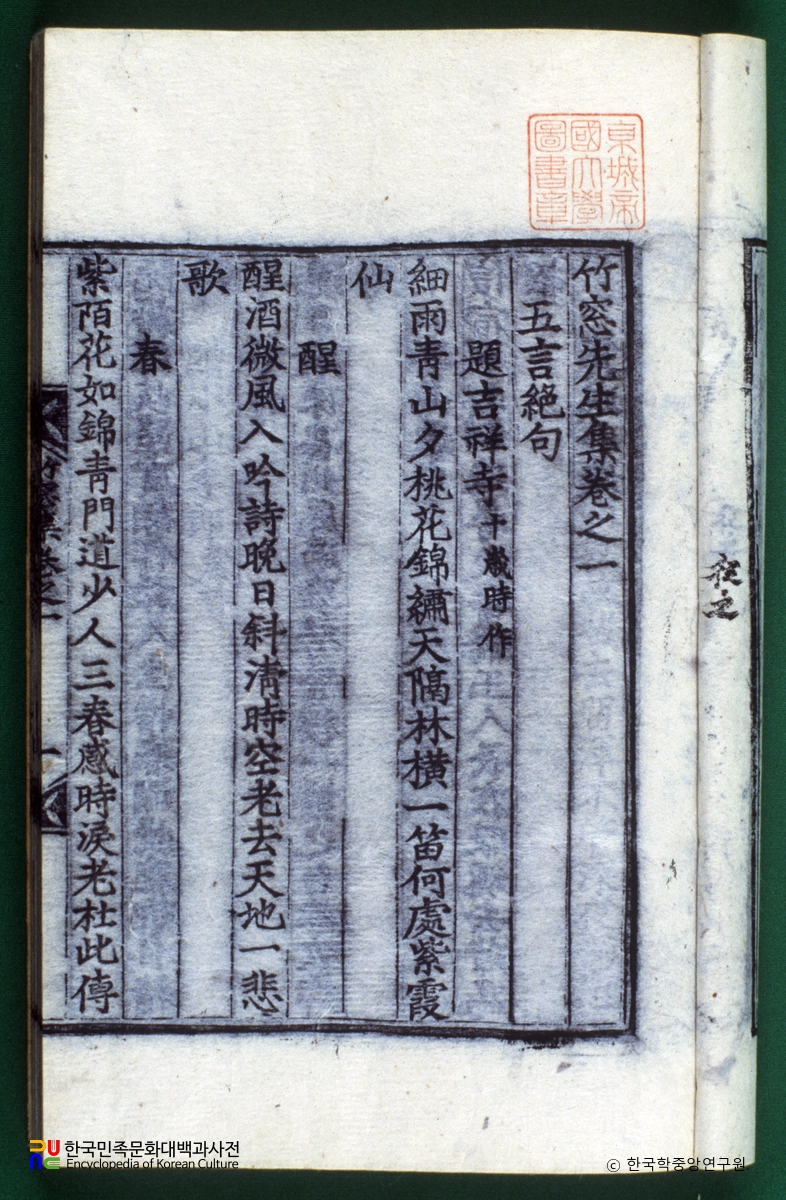 京城帝
國大學
圖書章
竹窓先生集卷之一
五言絕句
題吉祥寺十歲時作
細雨青山夕桃花錦繡天隔林橫一笛何處紫霞
仙
醒
醒酒微風入吟詩晩日斜清時空老去天地一悲
歌
春
紫陌花如錦靑門道少人三春感時淚老杜此傳
한국민족문화대백과사전
Encyclopedia of Korean Culture
© 한국학중앙연구원